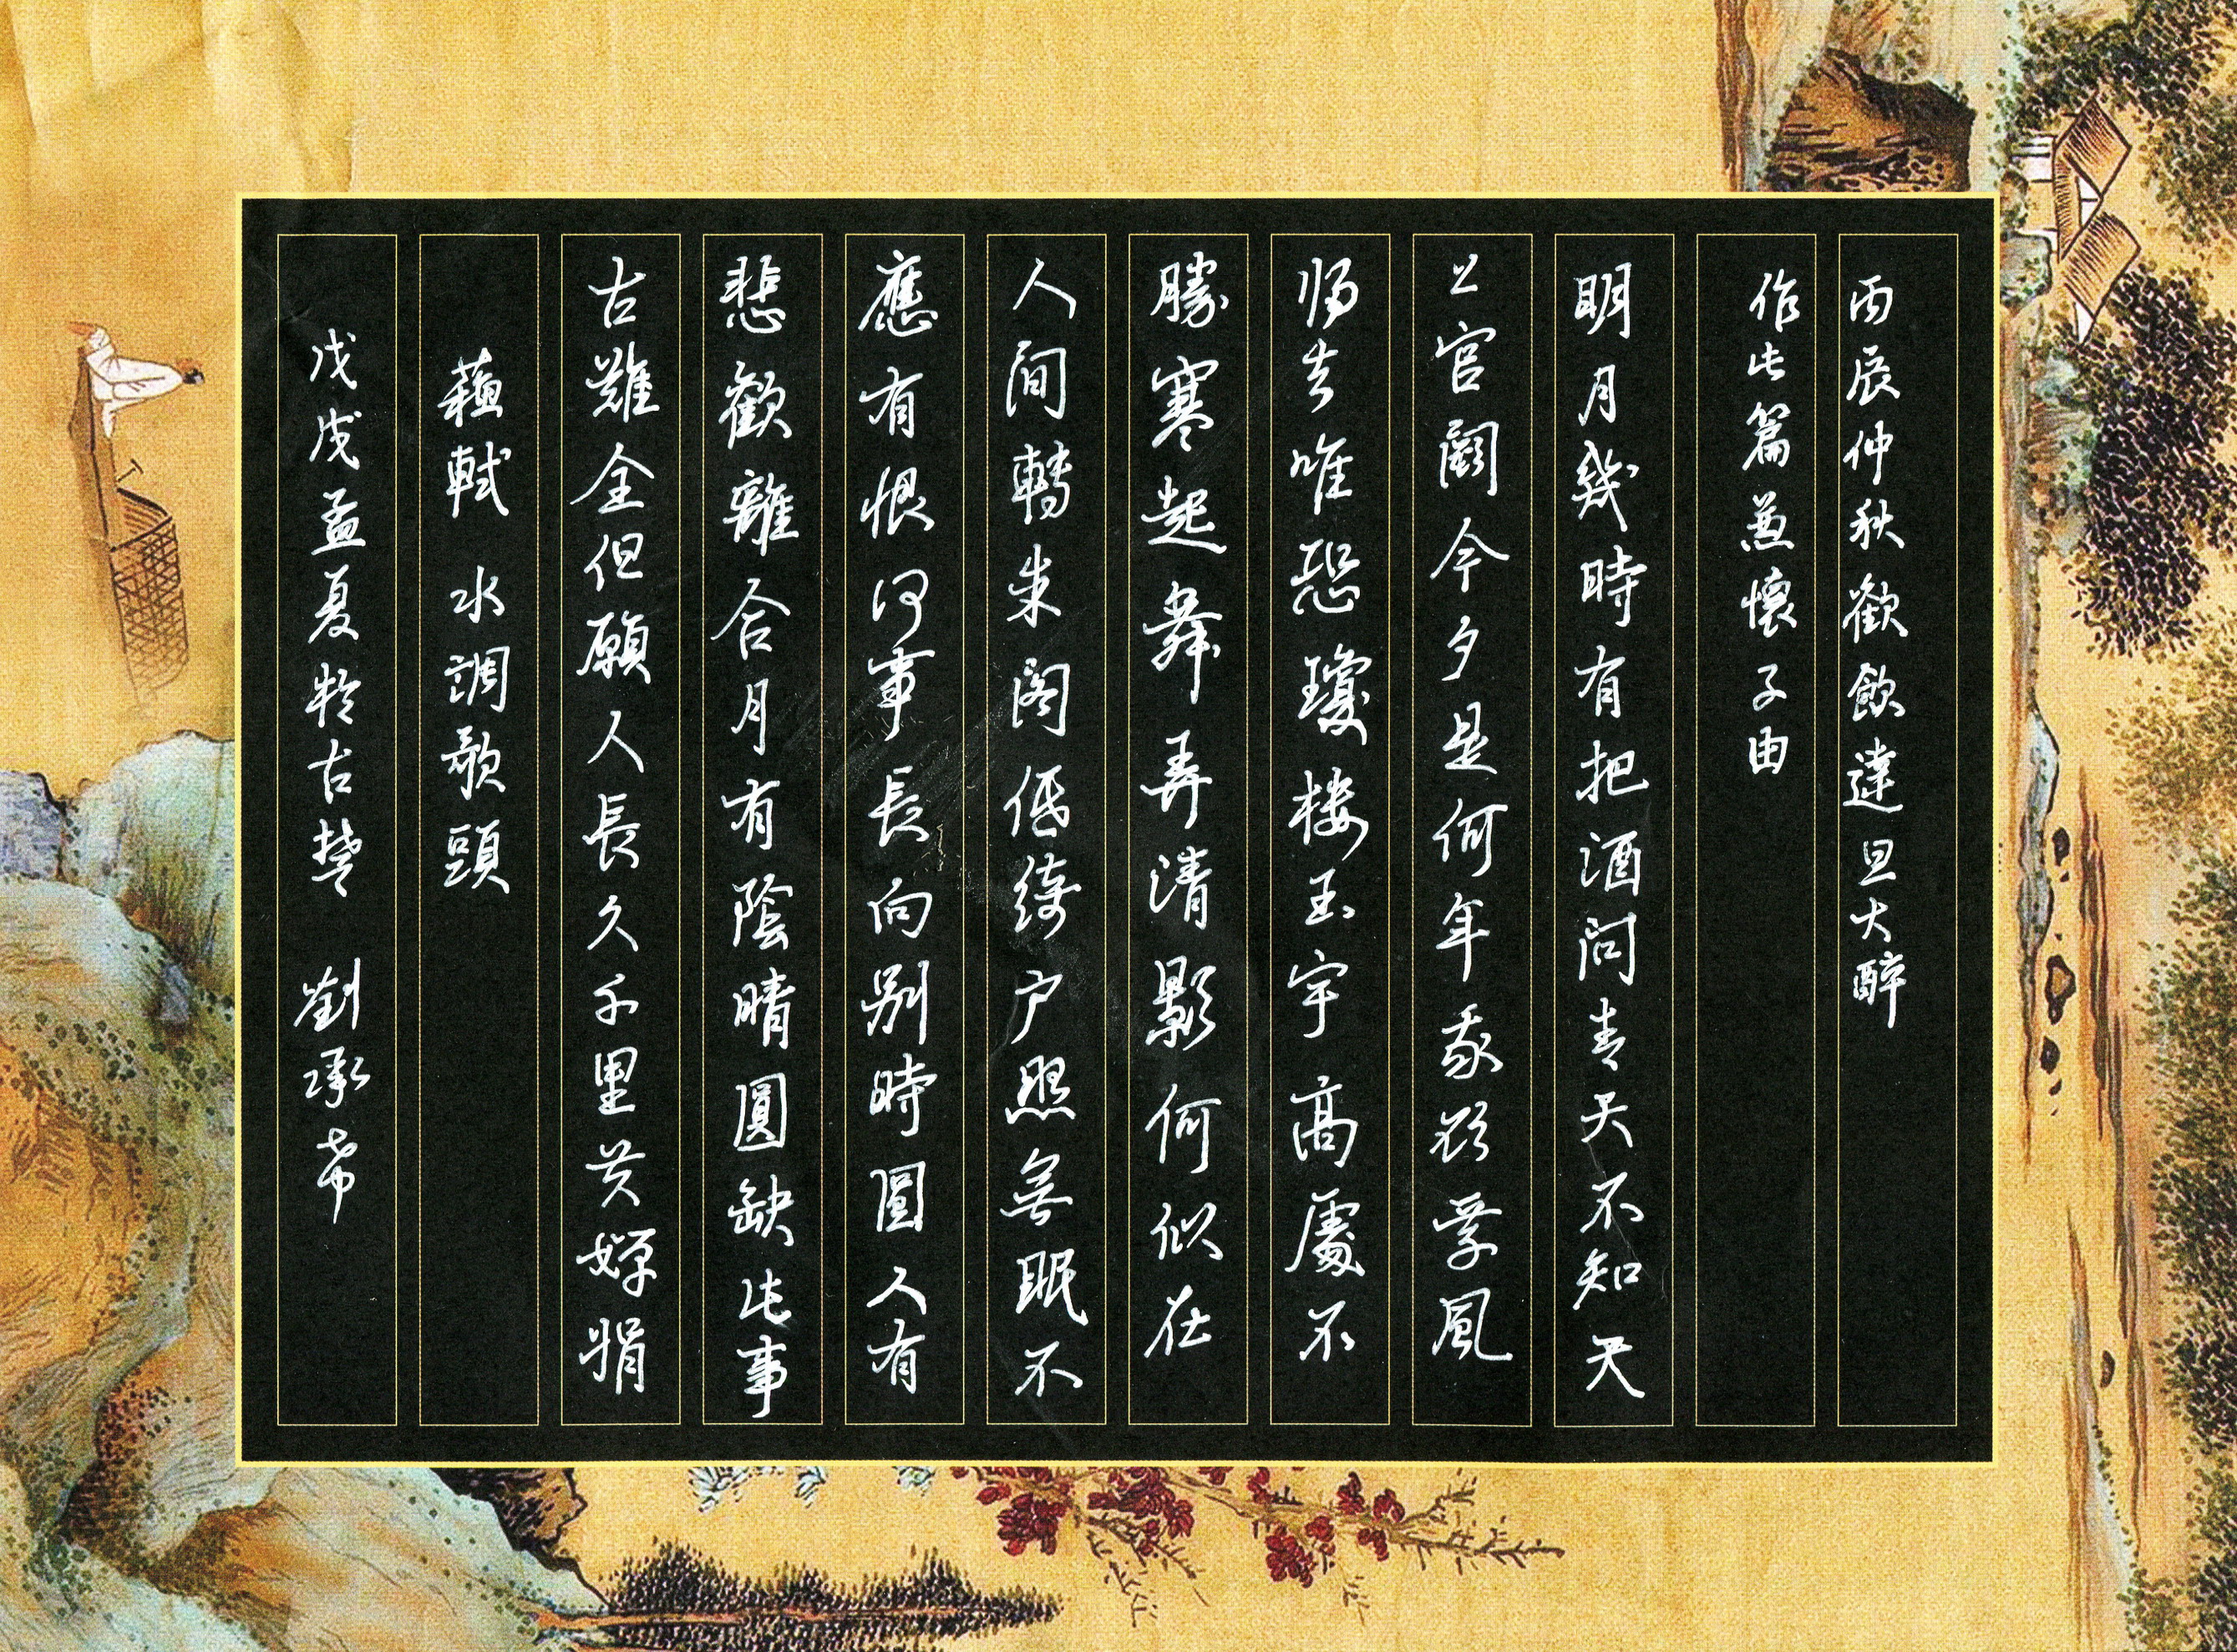 丙辰仲秋歡飲達旦大醉
作此篇兼懷子由
明月幾時有把酒問青天不知天
上宮闕今夕是何年我欲乘風
归去唯恐瓊楼玉宇高處不
勝寒起舞弄清影何似在
人间轉朱阁低綺户照無眠不
應有恨何事長向别時圓人有
悲歡離合月有陰晴圓缺此事
古難全但願人長久千里共嬋娟
蘇軾 水調歌頭
戊戌孟夏於古楚 劉承